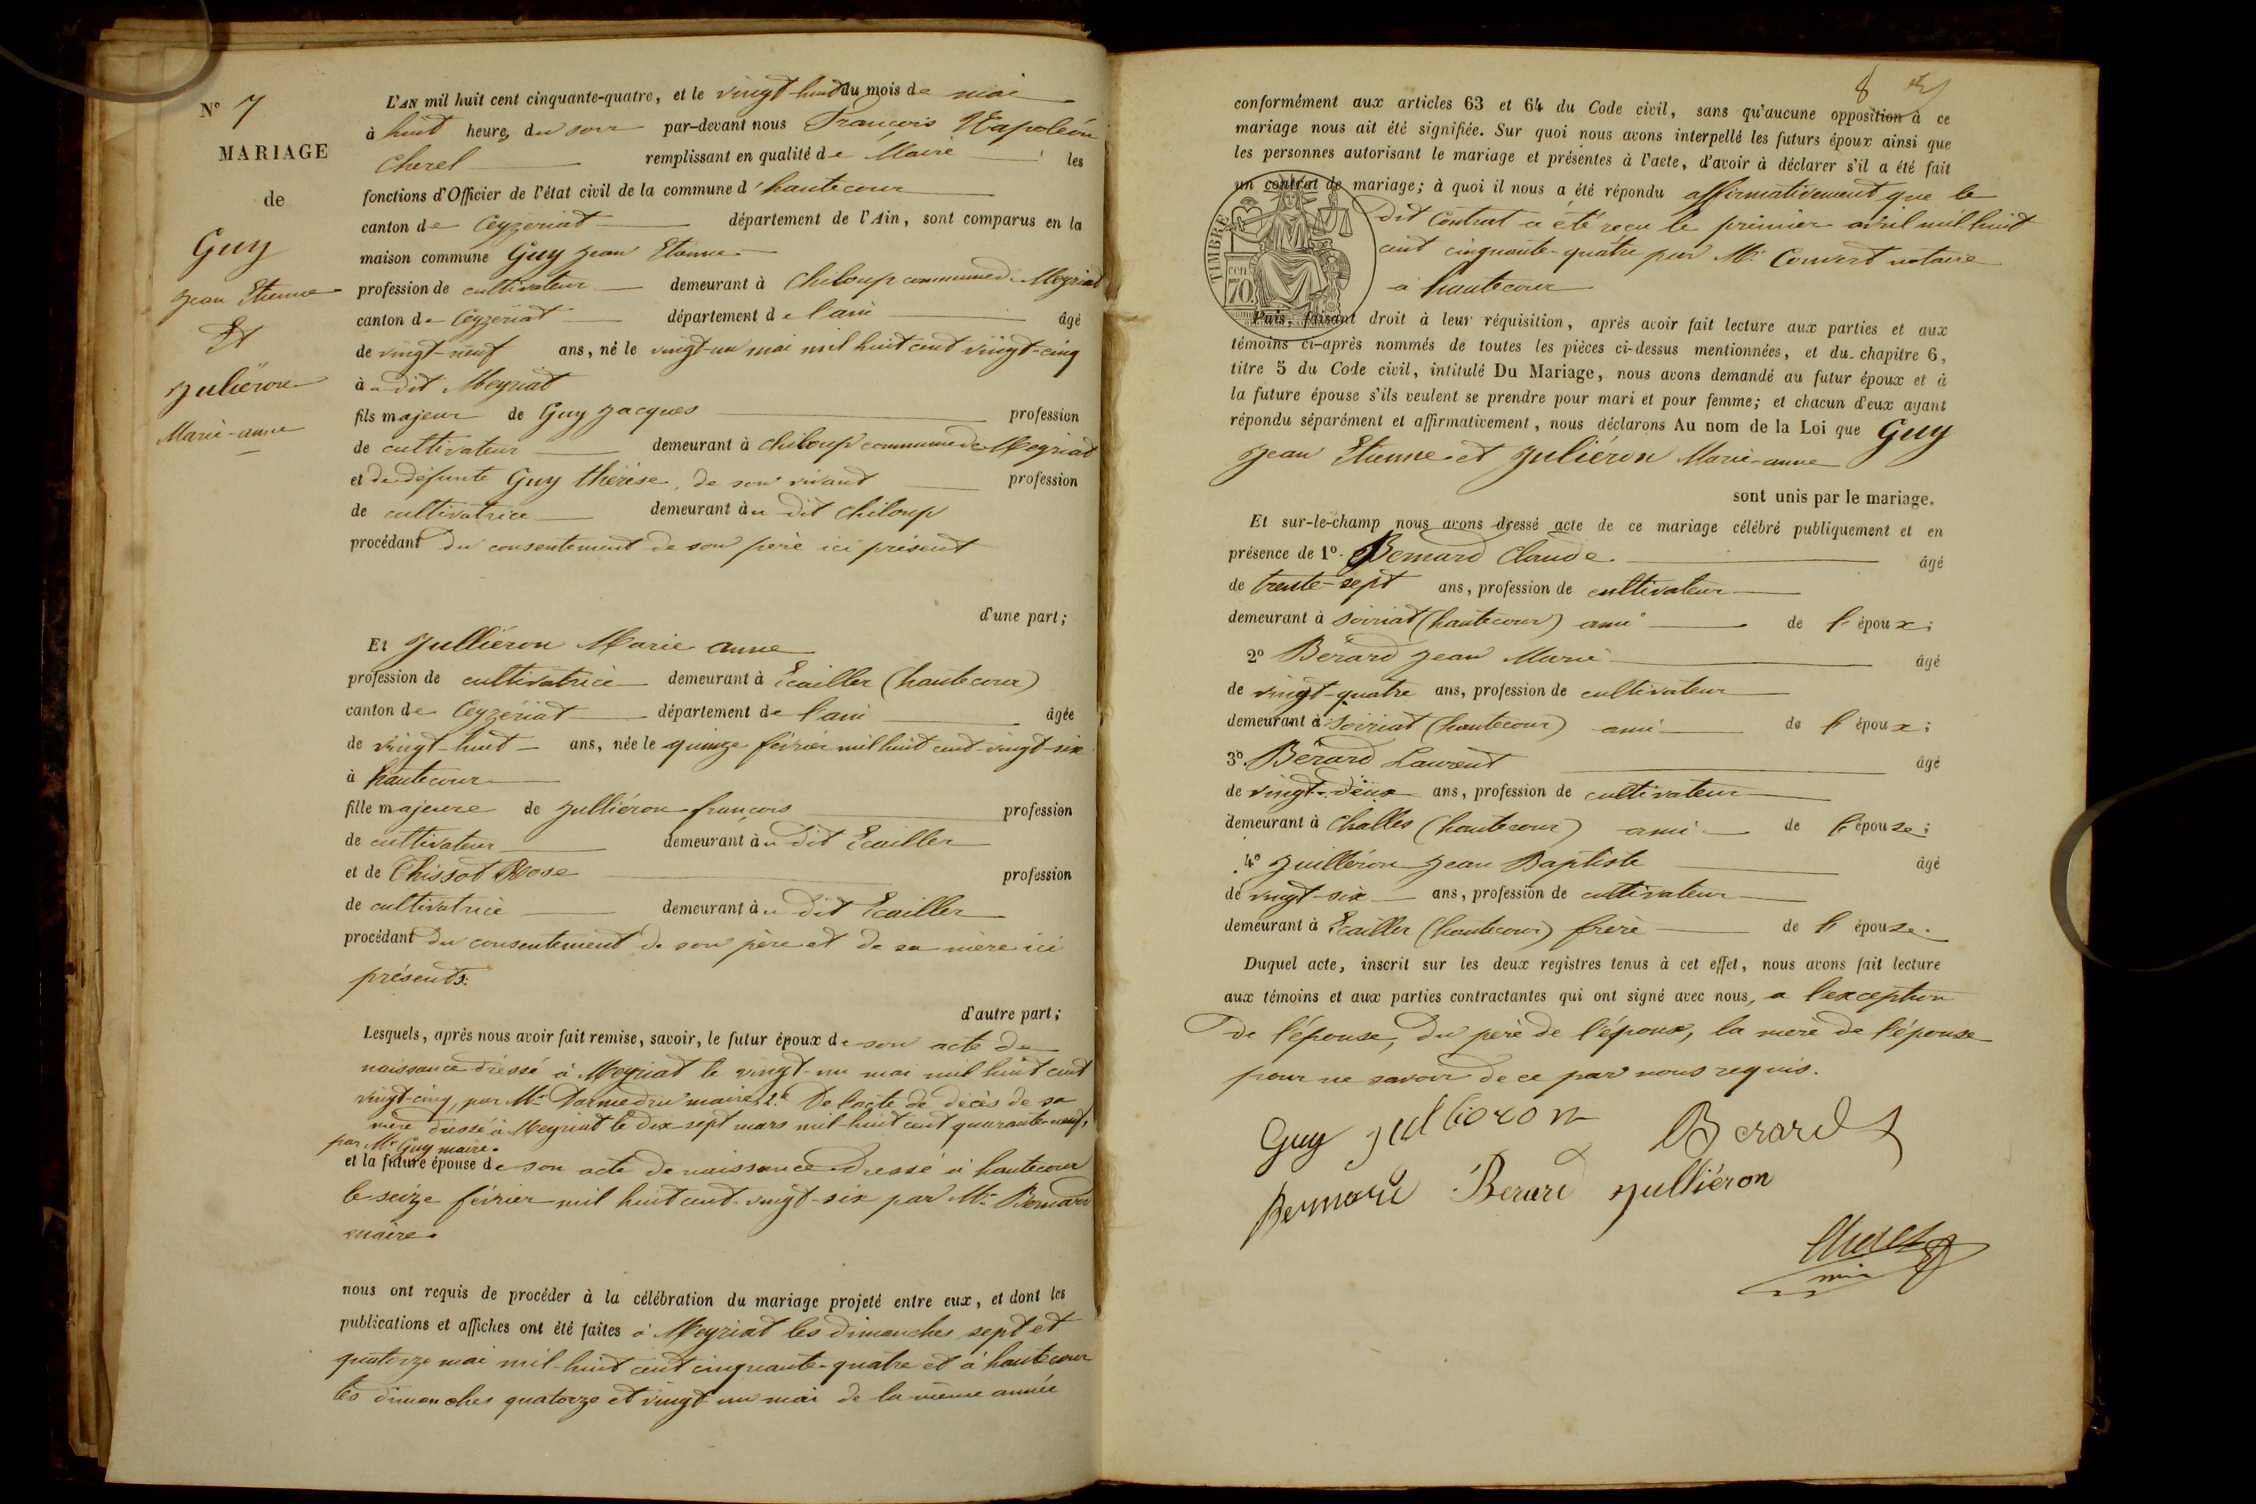 N° 7
MARIAGE
de
Guy
Jean Etienne
Et
Julliéron
Marie-anne
L'AN mil huit cent cinquante-quatre, et le vingt-huit du mois de mai
à huit heures du soir par-devant nous François Napoléon
Cherel remplissant en qualité de Maire les
fonctions d'Officier de l'état civil de la commune d'hautecour
canton de Ceyzériat département de l'Ain, sont comparus en la
maison commune Guy Jean Etienne
profession de cultivateur demeurant à Chiloup commune de Meyriat
canton de Ceyzeriat département de l'ain âgé
de vingt-neuf ans, né le vingt-un mai mil huit cent vingt-cinq
à u dit Meyriat
fils majeur de Guy Jacques profession
de cultivateur demeurant à chiloup commune de Meyriat
et de défunte Guy thérèse, de son vivant profession
de cultivatrice demeurant à u dit chiloup
procédant du consentement de son père ici présent
d'une part;
Et Julliéron Marie anne
profession de cultivatrice demeurant à Ecailler (hautecour)
canton de Ceyzériat département de l'ain âgée
de vingt-huit ans, née le quinze février mil huit cent vingt-six
à hautecour
fille majeure de Julliéron françois profession
de cultivateur demeurant à u dit Ecailler
et de Chissot Rose profession
de cultivatrice demeurant à u dit Ecailler
procédant du consentement de son père et de sa mère ici
présents.
d'autre part;
Lesquels, après nous avoir fait remise, savoir, le futur époux de son acte de
naissance dressé à Meyriat le vingt-un mai mil huit cent
vingt-cinq, par Mr maire, 2.e De l'acte de décès de sa
mère dressé à Meyriat le dix-sept mars mil-huit cent quarante-neuf,
par Mr Guy maire.
et la future épouse de son acte de naissance dressé à hautecour
le seize février mil huit cent vingt-six par Mr Bernard
maire.
nous ont requis de procéder à la célébration du mariage projeté entre eux, et dont les
publications et affiches ont été faites à Meyriat les dimanches sept et
quatorze mai mil huit cent cinquante-quatre et à hautecour
les dimanches quatorze et vingt un mai de la même année
8
conformément aux articles 63 et 64 du Code civil, sans qu'aucune opposition à ce
mariage nous ait été signifiée. Sur quoi nous avons interpellé les futurs époux ainsi que
les personnes autorisant le mariage et présentes à l'acte, d'avoir à déclarer s'il a été fait
un contrat de mariage; à quoi il nous a été répondu affirmativement que le
dit Contrat a été reçu le premier avril mil huit
cent cinquante-quatre par Mr Convert notaire
à hautecour
TIMBRE
cen
70
Puis, faisant droit à leur réquisition, après avoir fait lecture aux parties et aux
témoins ci-après nommés de toutes les pièces ci-dessus mentionnées, et du chapitre 6,
titre 5 du Code civil, intitulé Du Mariage, nous avons demandé au futur époux et à
la future épouse s'ils veulent se prendre pour mari et pour femme; et chacun d'eux ayant
répondu séparément et affirmativement, nous déclarons Au nom de la Loi que Guy
Jean Etienne et Juliéron Marie-anne
sont unis par le mariage.
Et sur-le-champ nous avons dressé acte de ce mariage célébré publiquement et en
présence de 1°. Bernard Claude âgé
de trente-sept ans, profession de cultivateur
demeurant à Soiriat (hautecour) ami de l'époux;
2° Bérard Jean Marie âgé
de vingt-quatre ans, profession de cultivateur
demeurant à Soiriat (hautecour) ami de l'époux;
3°. Bérard Laurent âgé
de vingt-deux ans, profession de cultivateur
demeurant à Challes (hautecour) ami de l'épouse;
4° Juilléron Jean Baptiste âgé
de vingt-six ans, profession de cultivateur
demeurant à Ecailler (hautecour) frère de l'épouse.
Duquel acte, inscrit sur les deux registres tenus à cet effet, nous avons fait lecture
aux témoins et aux parties contractantes qui ont signé avec nous, a l'exception
De l'épouse, du père de l'époux, la mere de l'épouse
pour ne savoir de ce par nous requis.
Guy Julieron Berard
Bernard Berard Julliéron
Cherel